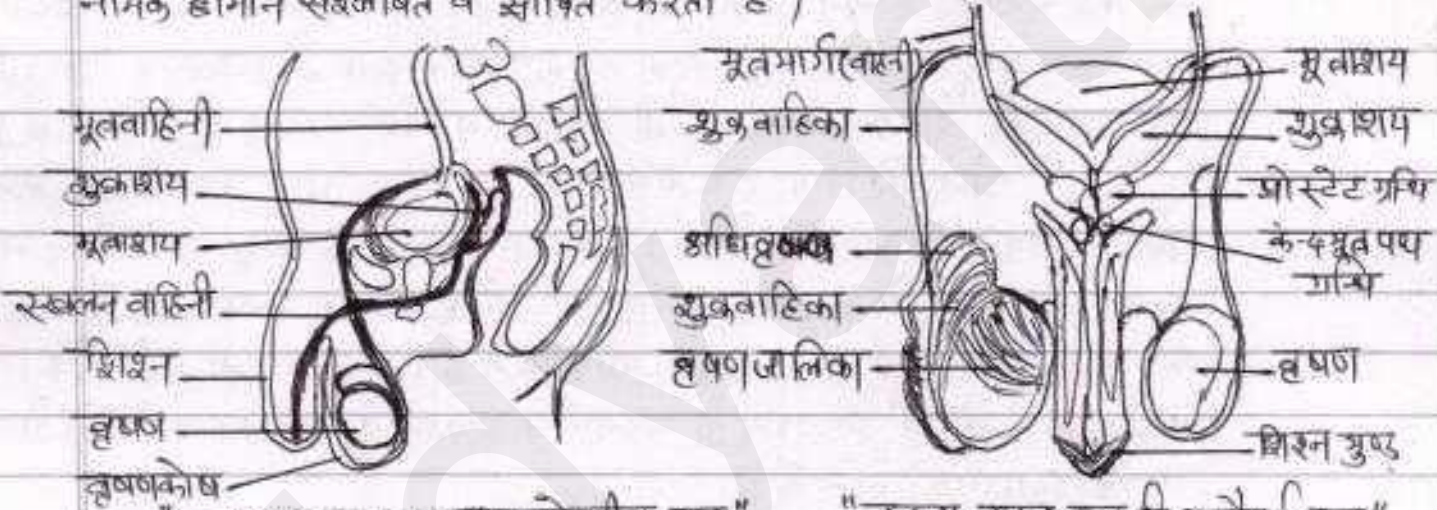 नामक हार्मोन संश्लेषित व स्रावित करती है /
मूत्रवाहिनी
शुक्राशय
मूत्राशय
स्खलन वाहिनी
शिश्न
वृषण
वृषणकोष
मूत्रमार्ग(वाहिनी)
शुक्रवाहिका
अधिवृषण
शुक्रवाहिका
वृषण जालिका
मूत्राशय
शुक्राशय
प्रोस्टेट ग्रन्थि
कन्दमूत्र पथ
ग्रन्थि
वृषण
शिश्न मुण्ड